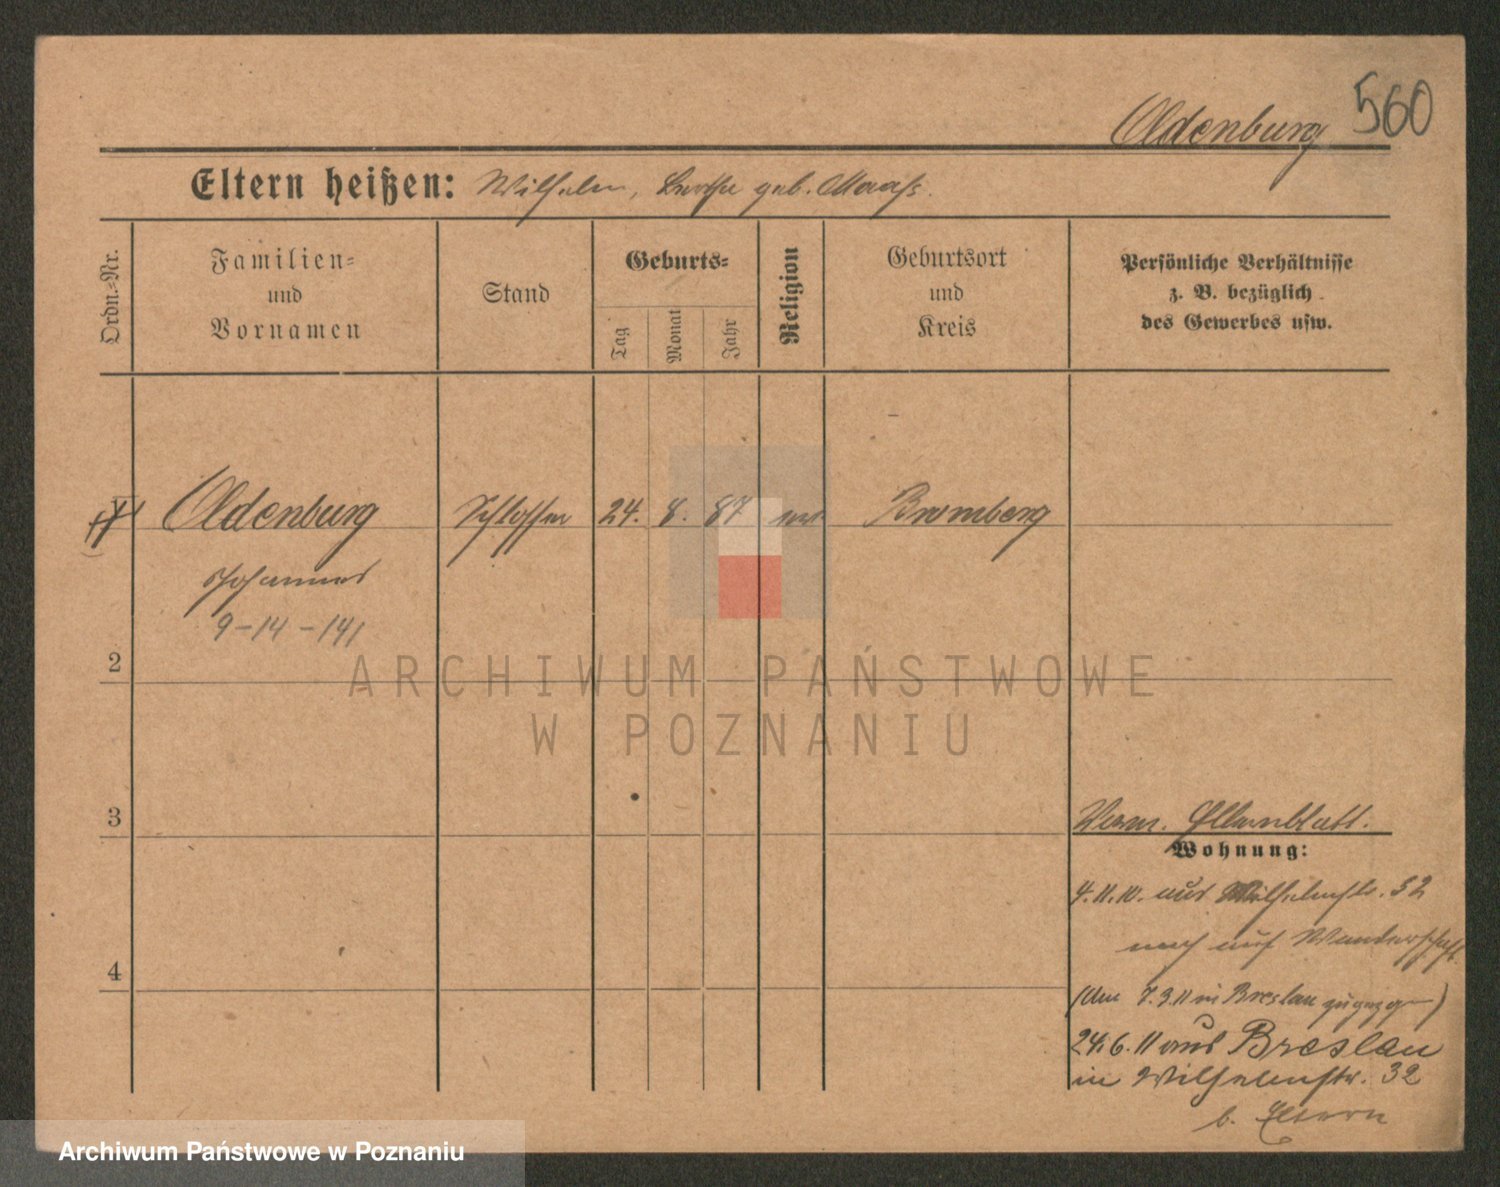 Oldenburg 560
Eltern heißen: Wilhelm, Bertha geb. Maass.
Ordn.-Nr.
Familien-
und
Vornamen
Stand
Geburts-
Tag
Monat
Jahr
Religion
Geburtsort
und
Kreis
Persönliche Verhältnisse
z. B. bezüglich
des Gewerbes usw.
Oldenburg Schlosser 24. 8. 87 Bromberg
Johannes
9-14-141
2
ARCHIWUM PAŃSTWOWE
W POZNANIU
3
Verm. Elternblatt.
Wohnung:
4
4.11.10. aus Wilhelmstr. 32
nach auf Wanderschaft
(den 7.3.11 in Breslau zugezogen)
24.6.11 aus Breslau
in Wilhelmstr. 32
b. Eltern
Archiwum Państwowe w Poznaniu